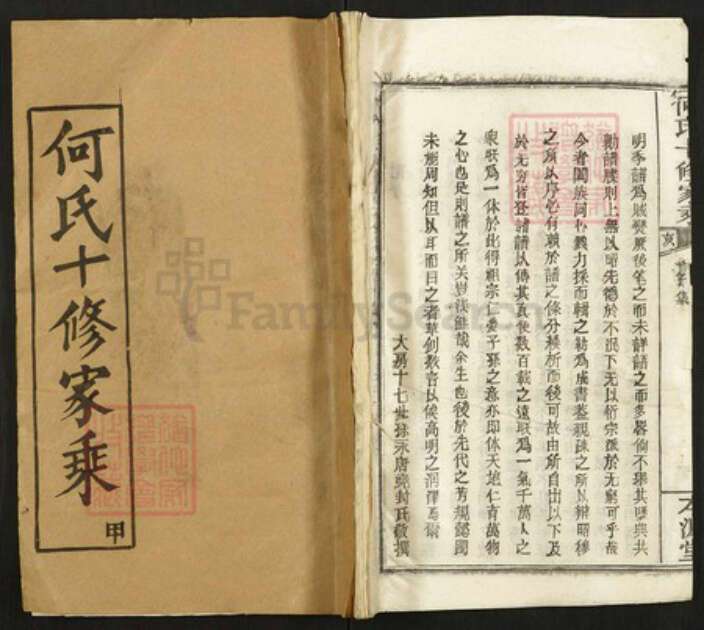 何氏十修家乘
甲
何氏十修家乘
本源堂
明季譜爲賊燹厥後筆之而未詳語之而多畧倘不舉其墜典共
勷譜牒則上無以昭先德於不泯下無以衍宗徽於無窮可乎哉
今者闔族同心戮力採而輯之勒爲成書蓋親疎之所以辨昭穆
之所以序必有賴於譜之條分縷析而後可故由所自出以下及
於无穷皆登諸譜以傳其真使數百載之遠联爲一氣千萬人之
衆联爲一体於此得祖宗仁愛子孫之意亦即体天地仁育萬物
之心也是則譜之所关豈淺鮮哉余生也後於先代之芳規懿園
未能周知但以耳而目之者草創数言以俟高明之潤澤焉爾
大房十七世孫永唐堯封氏敬撰
FamilySearch